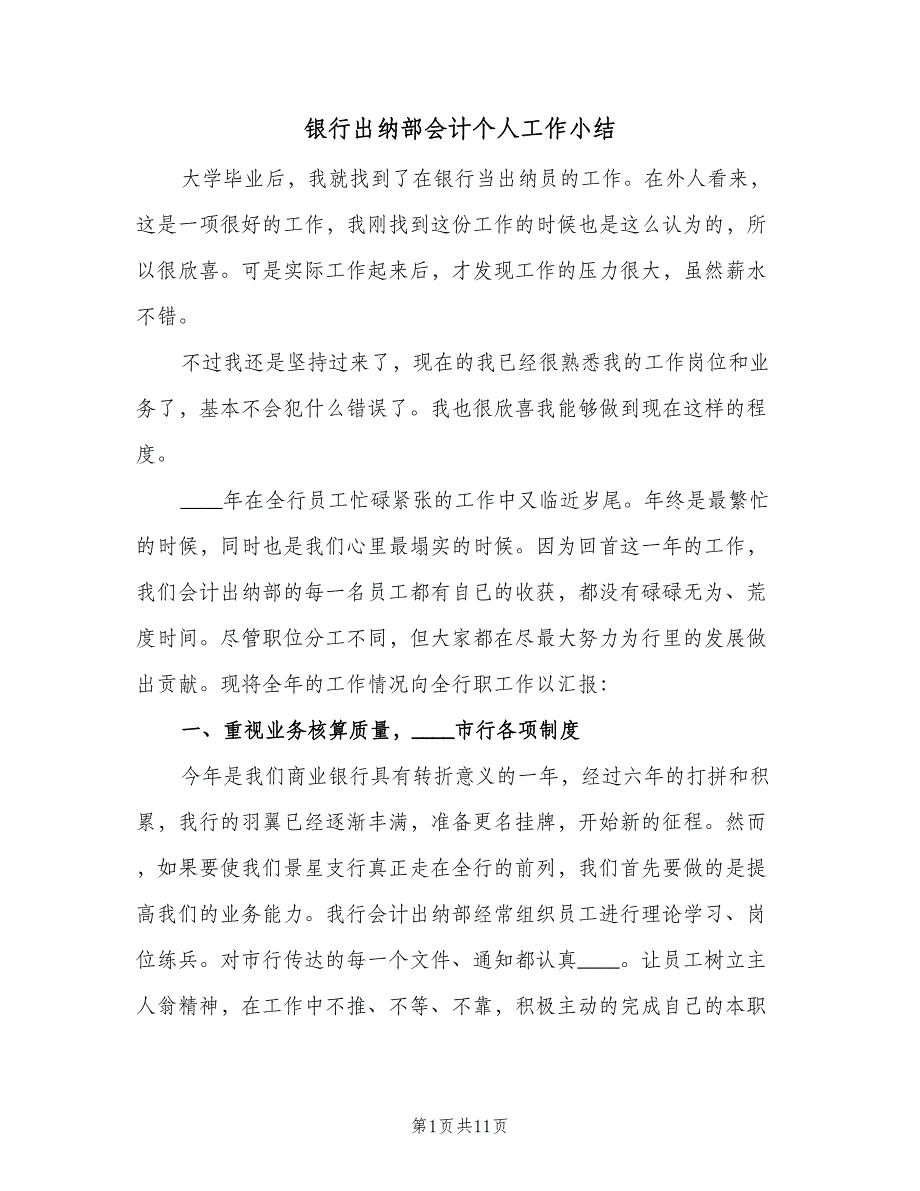 银行出纳部会计个人工作小结
大学毕业后，我就找到了在银行当出纳员的工作。在外人看来，
这是一项很好的工作，我刚找到这份工作的时候也是这么认为的，所
以很欣喜。可是实际工作起来后，才发现工作的压力很大，虽然薪水
不错。
不过我还是坚持过来了，现在的我已经很熟悉我的工作岗位和业
务了，基本不会犯什么错误了。我也很欣喜我能够做到现在这样的程
度。
____年在全行员工忙碌紧张的工作中又临近岁尾。年终是最繁忙
的时候，同时也是我们心里最塌实的时候。因为回首这一年的工作，
我们会计出纳部的每一名员工都有自己的收获，都没有碌碌无为、荒
度时间。尽管职位分工不同，但大家都在尽最大努力为行里的发展做
出贡献。现将全年的工作情况向全行职工作以汇报：
一、重视业务核算质量，____市行各项制度
今年是我们商业银行具有转折意义的一年，经过六年的打拼和积
累，我行的羽翼已经逐渐丰满，准备更名挂牌，开始新的征程。然而
，如果要使我们景星支行真正走在全行的前列，我们首先要做的是提
高我们的业务能力。我行会计出纳部经常组织员工进行理论学习、岗
位练兵。对市行传达的每一个文件、通知都认真____。让员工树立主
人翁精神，在工作中不推、不等、不靠，积极主动的完成自己的本职
第1页共11页